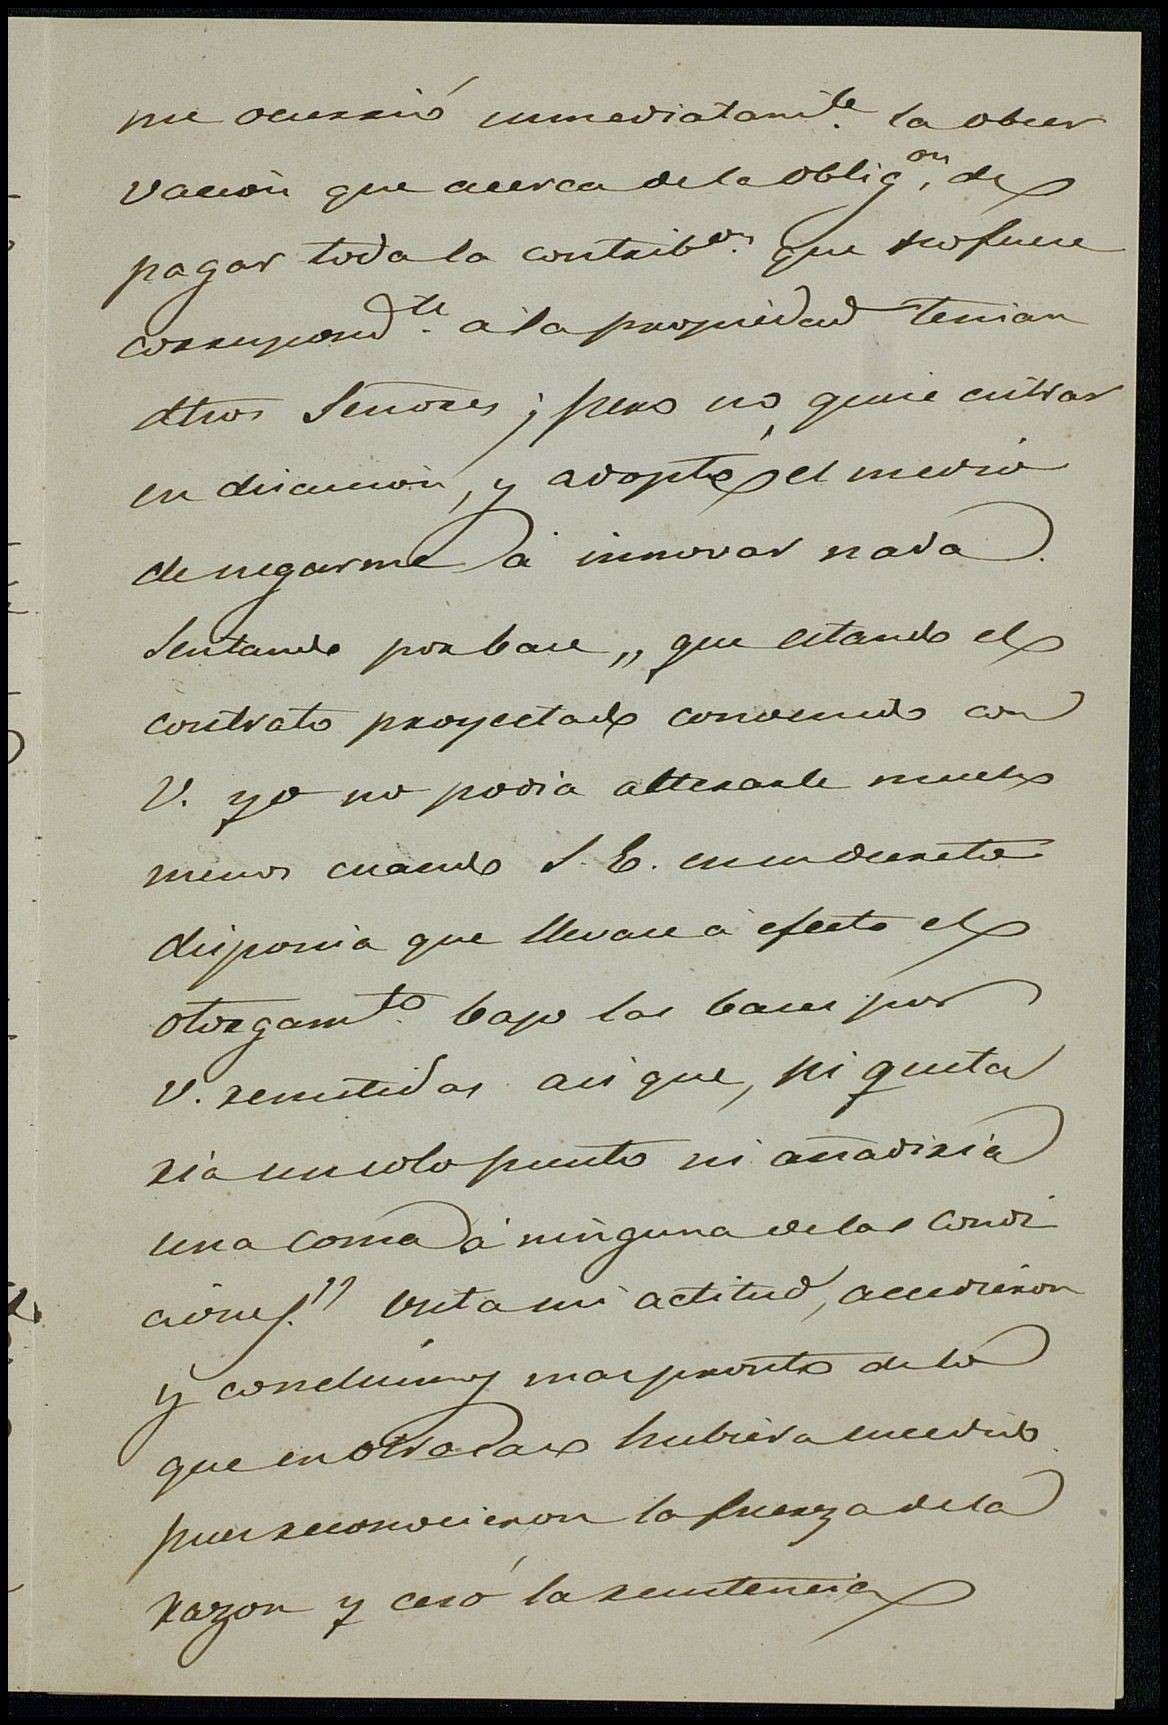 me ocurrió inmediatamte. la obser
vacion que acerca de la obligon. de
pagar toda la contribon. que no fuese
correspondte. a la propiedad tenian
dhos Señores; pero no quise entrar
en discusion, y adopté el medio
de negarme á innovar nada.
Sentando por base „ que estando el
contrato proyectado convenido con
V. yo no podia alterarle mucho
menos cuando S. E. en su decreto
disponia que llevase á efecto el
otorgamto. bajo las bases por
V. remitidas asi que, ni quita
ria un solo punto ni añadiria
una coma á ninguna de las condi
ciones." Vista mi actitud, accedieron
y concluimos mas pronto de lo
que en otro caso hubiera sucedido
pues reconocieron la fuerza de la
razon y cesó la resistencia